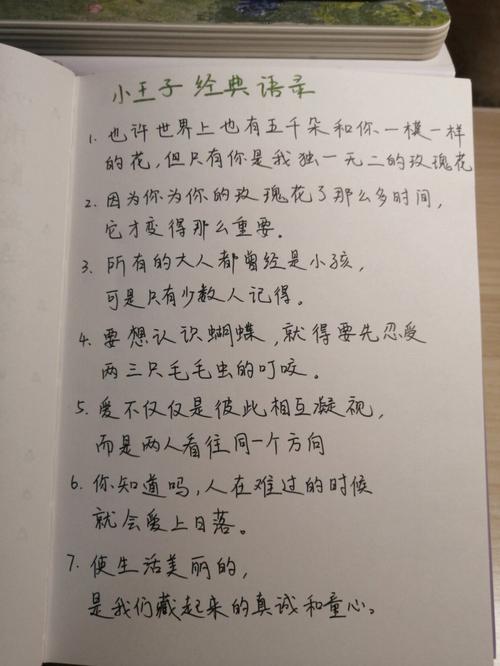 小王子 经典语录
1. 也许世界上也有五千朵和你一模一样
的花,但只有你是我独一无二的玫瑰花
2. 因为你为你的玫瑰花了那么多时间,
它才变得那么重要。
3. 所有的大人都曾经是小孩,
可是只有少数人记得。
4. 要想认识蝴蝶,就得要先忍爱
两三只毛毛虫的叮咬。
5. 爱不仅仅是彼此相互凝视,
而是两人看往同一个方向
6. 你知道吗,人在难过的时候
就会爱上日落。
7. 使生活美丽的,
是我们藏起来的真诚和童心。